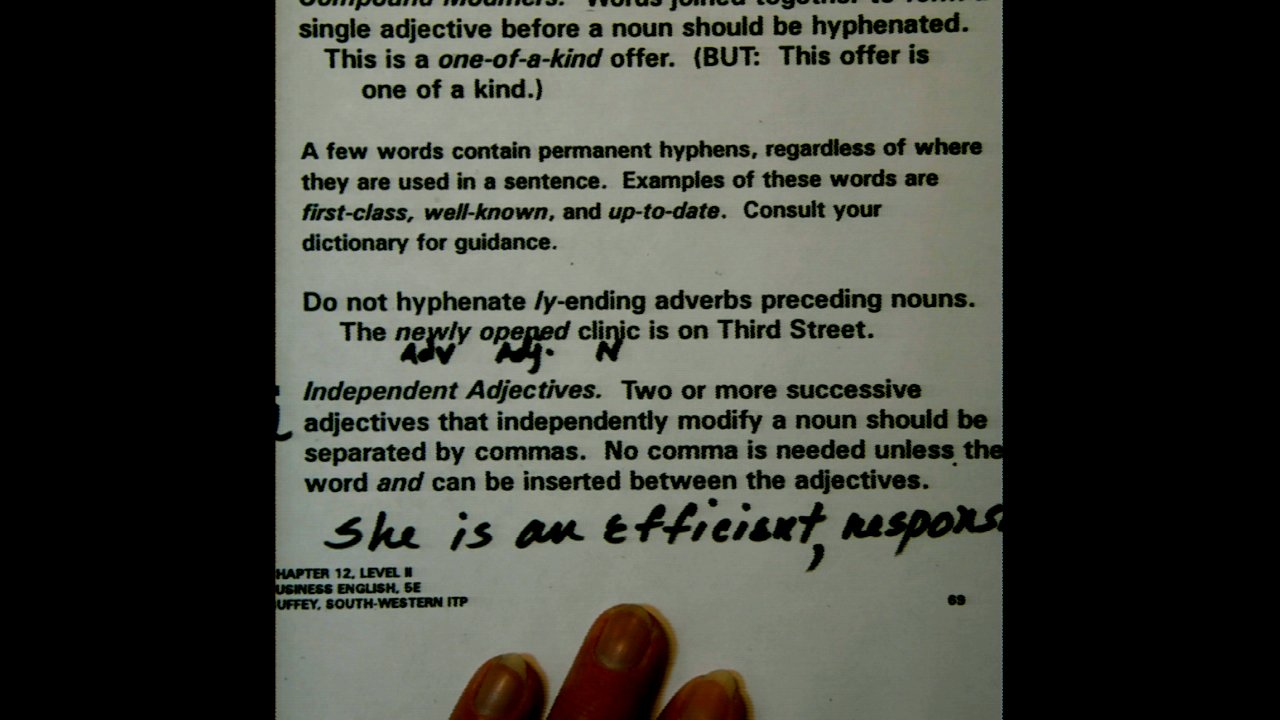 Compound Modifiers. Words joined together to form a
single adjective before a noun should be hyphenated.
This is a one-of-a-kind offer. (BUT: This offer is
one of a kind.)
A few words contain permanent hyphens, regardless of where
they are used in a sentence. Examples of these words are
first-class, well-known, and up-to-date. Consult your
dictionary for guidance.
Do not hyphenate ly-ending adverbs preceding nouns.
The newly opened clinic is on Third Street.
Adv Adj. N
Independent Adjectives. Two or more successive
adjectives that independently modify a noun should be
separated by commas. No comma is needed unless the
word and can be inserted between the adjectives.
She is an efficient, respons
HAPTER 12, LEVEL II
USINESS ENGLISH, 5E
UFFEY, SOUTH-WESTERN ITP
69